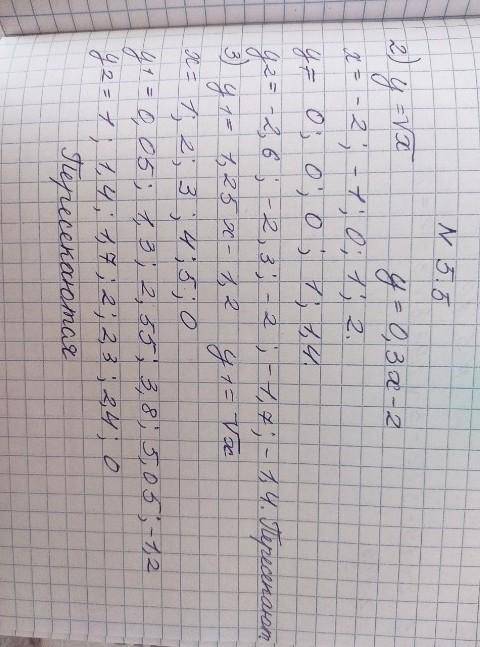 N 5.5
2) y = √x y = 0,3x - 2
x = -2; -1; 0; 1; 2.
y1 = 0; 0; 0; 1; 1,4.
y2 = -2,6; -2,3; -2; -1,7; -1,4. Пересекают
3) y1 = 1,25x - 1,2 y1 = √x
x = 1; 2; 3; 4; 5; 0
y1 = 0,05; 1,3; 2,55; 3,8; 5,05; -1,2
y2 = 1; 1,4; 1,7; 2; 2,3; 2,4; 0
Пересекаются